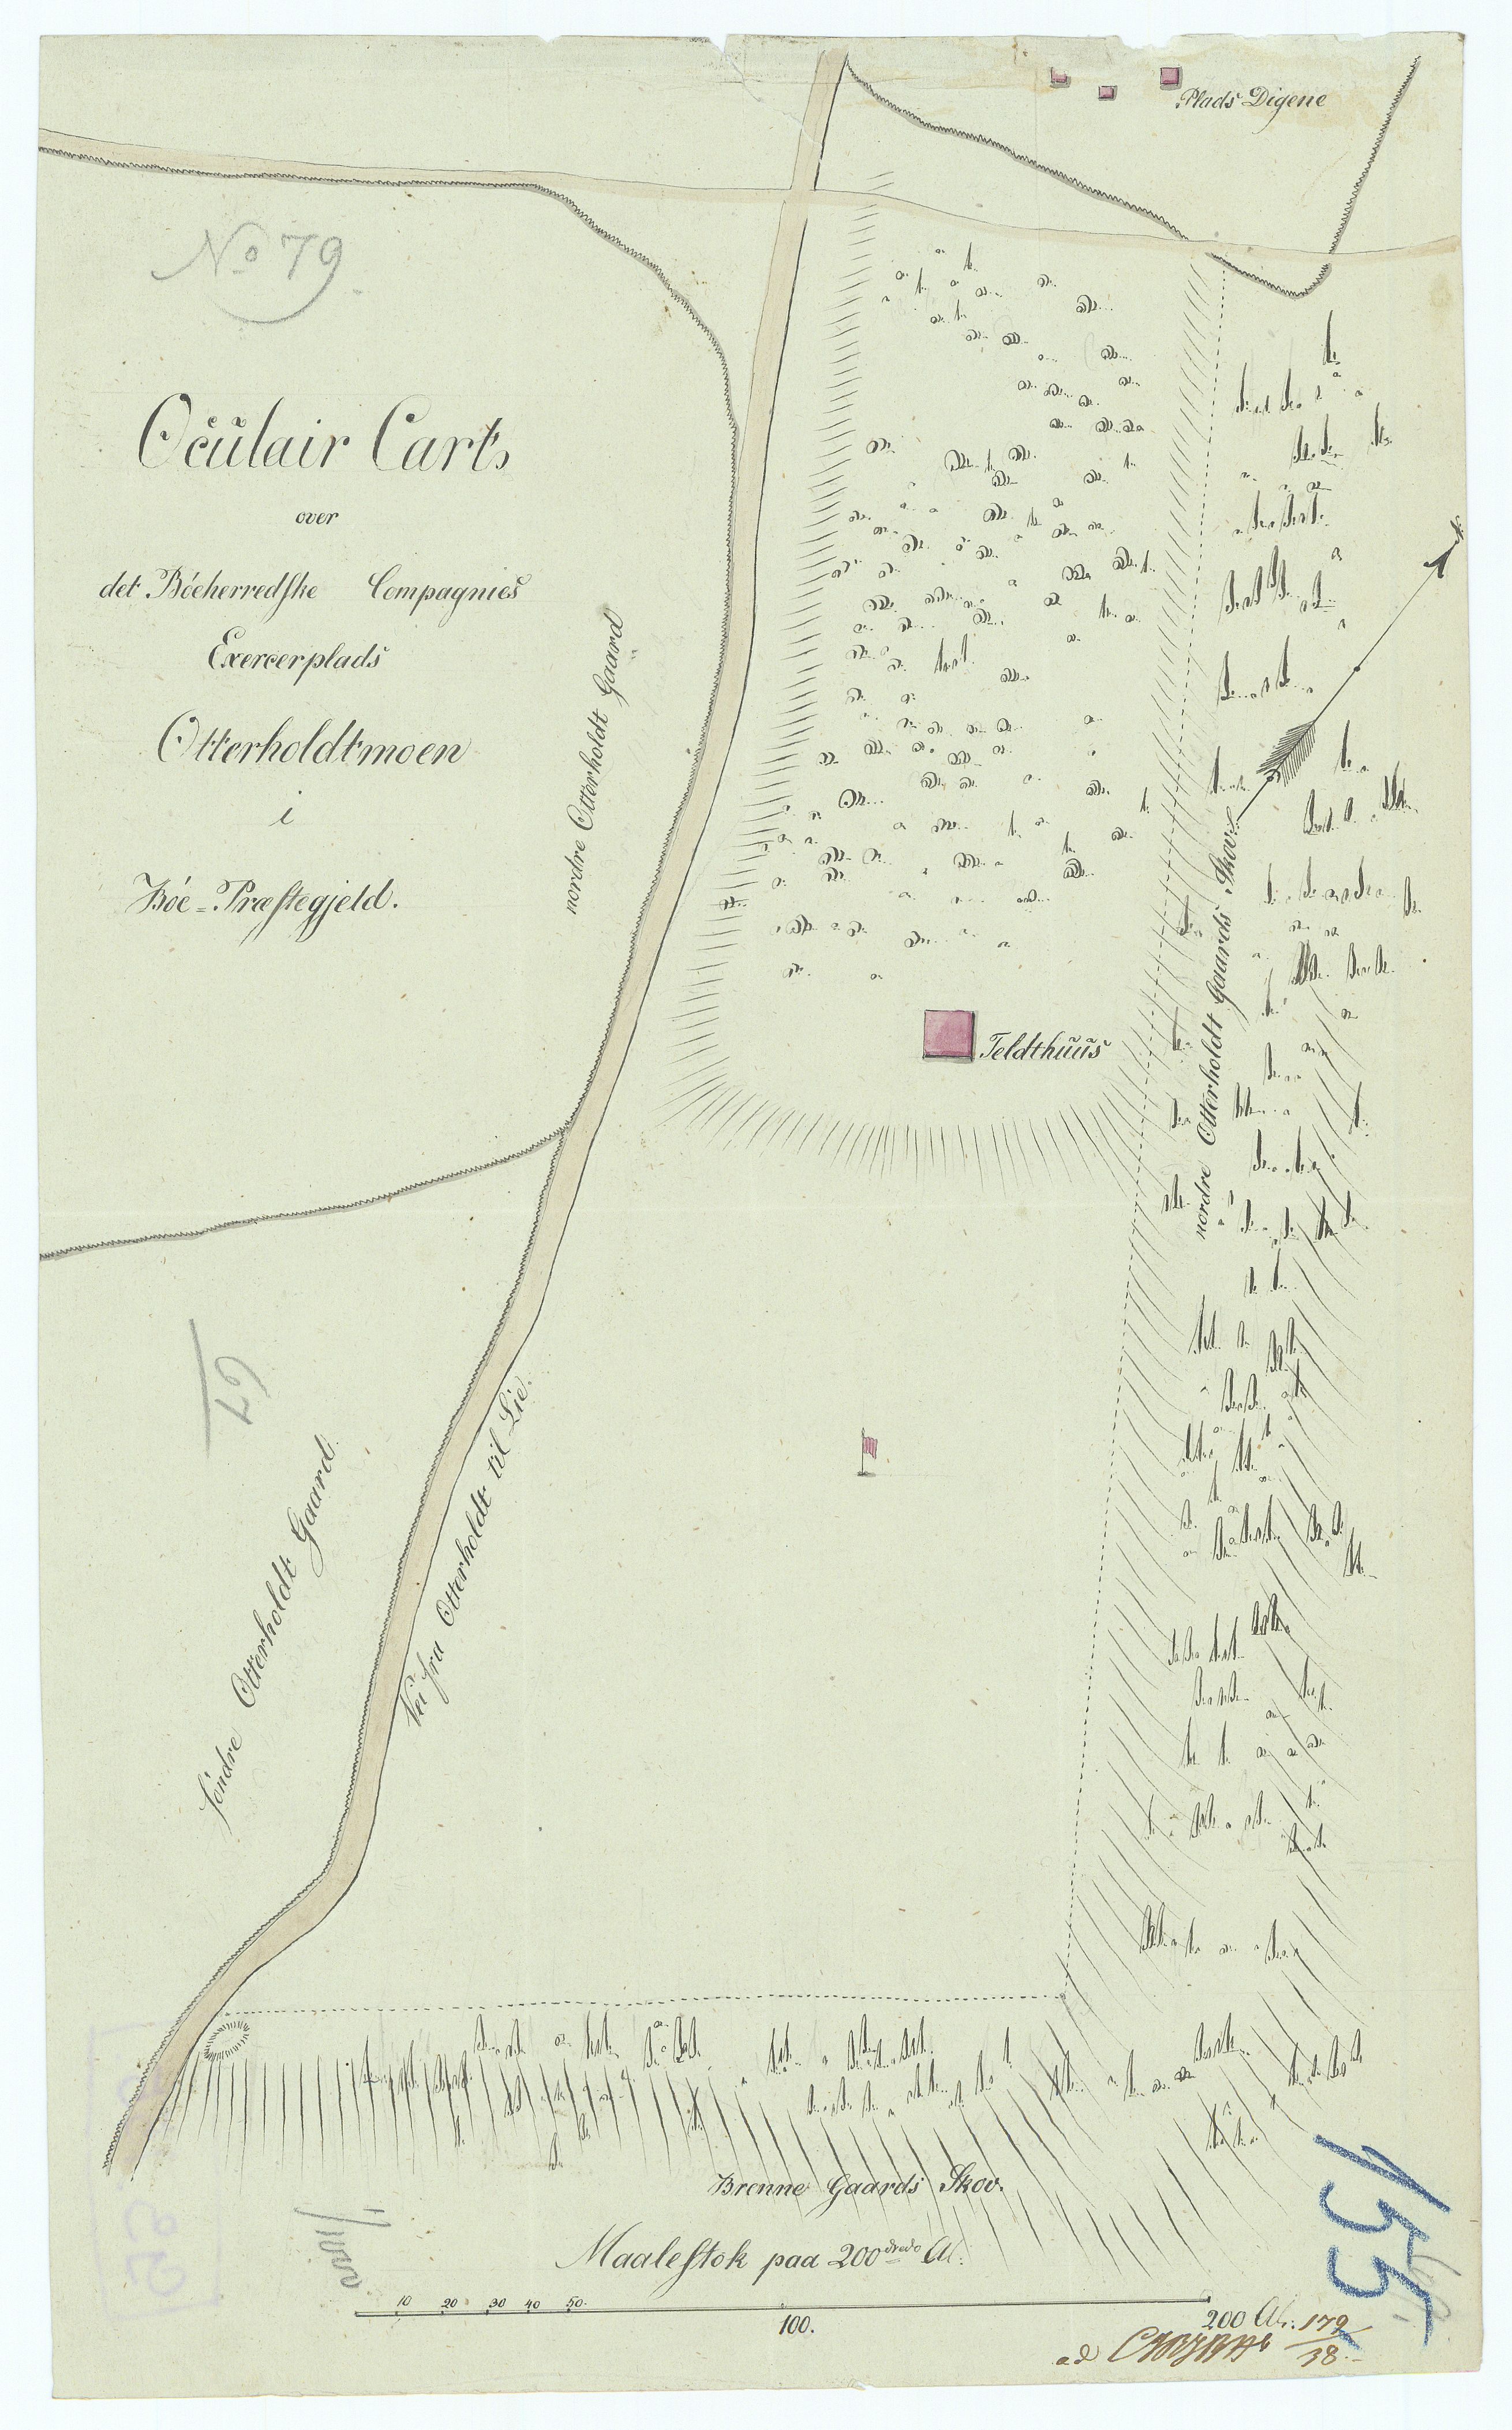 Plads Digene
No 79
Oculair Cart
over
det Bóeherredske Compagnies
Exercerplads
Otterholdtmoen
i
Bóe-Præstegjeld.
nordre Otterholdt Gaard
Teldthuus
nordre Otterholdt Gaards Skov.
Vei fra Otterholdt til Lie.
Söndre Otterholdt Gaard.
Brenne Gaards Skov.
Maalestok paa 200drede Al.
10 20 30 40 50.
100.
200 Al:
ad
179
38.
155